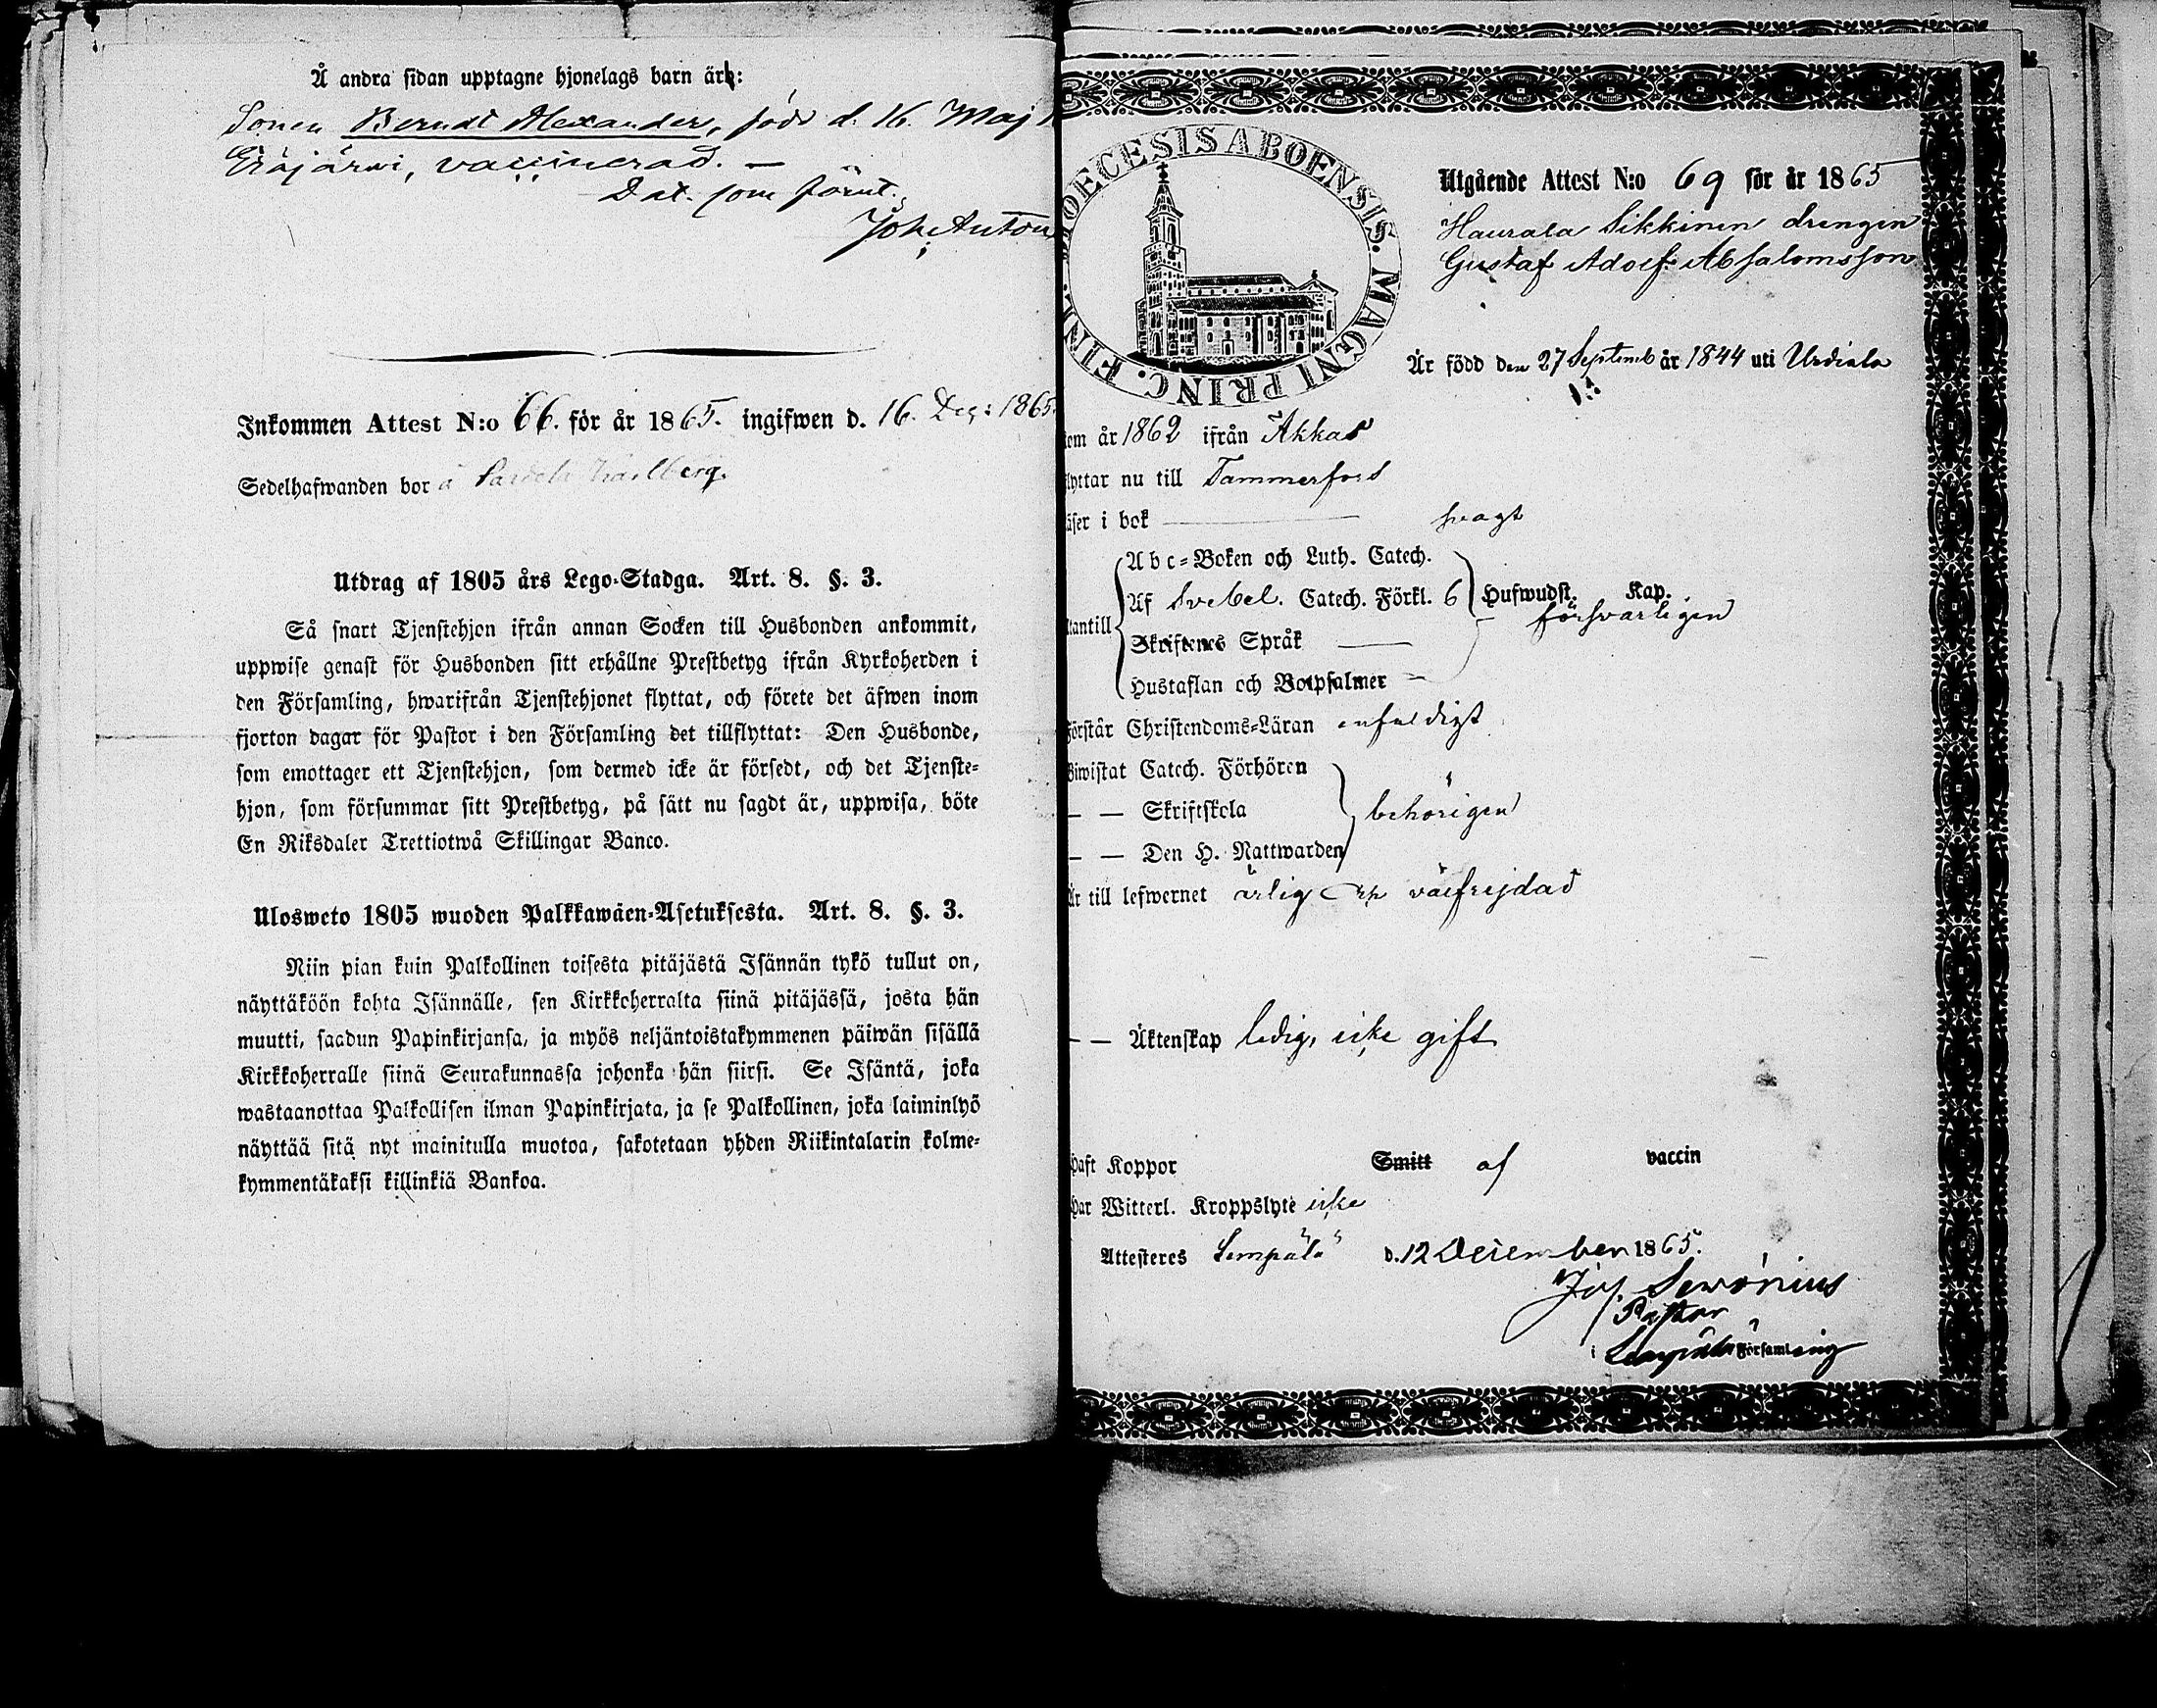 Å andra sidan upptagne hjonelags barn är:
Sonen Berndt Alexander, född d. 16. Maj
Eräjärvi, vaccinerad. —
Dat. som förut.
Joh. Anton
Inkommen Attest N:o 66. för år 1865. ingifwen d. 16. Dec: 1865.
Sedelhafwanden bor å Carlberg.
Utdrag af 1805 års Lego-Stadga. Art. 8. §. 3.
Så snart Tjenstehjon ifrån annan Socken till Husbonden ankommit,
uppwise genast för Husbonden sitt erhållne Prestbetyg ifrån Kyrkoherden i
den Församling, hwarifrån Tjenstehjonet flyttat, och förete det äfwen inom
fjorton dagar för Pastor i den Församling det tillflyttat: Den Husbonde,
som emottager ett Tjenstehjon, som dermed icke är försedt, och det Tjenste-
hjon, som försummar sitt Prestbetyg, på sätt nu sagdt är, uppwisa, böte
En Riksdaler Trettiotwå Skillingar Banco.
Ulosweto 1805 wuoden Palkkawäen-Asetuksesta. Art. 8. §. 3.
Niin pian kuin Palkollinen toisesta pitäjästä Isännän tykö tullut on,
näyttäköön kohta Isännälle, sen Kirkkoherralta siinä pitäjässä, josta hän
muutti, saadun Papinkirjansa, ja myös neljäntoistakymmenen päiwän sisällä
Kirkkoherralle siinä Seurakunnassa johonka hän siirsi. Se Isäntä, joka
wastaanottaa Palkollisen ilman Papinkirjata, ja se Palkollinen, joka laiminlyö
näyttää sitä nyt mainitulla muotoa, sakotetaan yhden Riikintalarin kolme-
kymmentäkaksi killinkiä Bankoa.
DIOECESIS ABOENSIS. MAGNI PRINC. FINL.
Utgående Attest N:o 69 för år 1865
Haurala Sikkinen drengen
Gustaf Adolf Absalomsson
Är född den 27 Septemb år 1844 uti Urdiala
kom år 1862 ifrån Akkas
flyttar nu till Tammerfors
läser i bok — svagt
utantill
Abc-Boken och Luth. Catech.
Af Svebel. Catech. Förkl. 6 Hufwudst. Kap.
försvarligen
Skriftenes Språk —
Hustaflan och Botpsalmer —
förstår Christendoms-Läran enfaldigt
Biwistat Catech. Förhören
— — Skriftskola behörigen
— — Den H. Nattwarden
Är till lefwernet ärlig och välfrejdad
— — Äktenskap ledig, icke gift
Haft Koppor Smitt af vaccin
Har Witterl. Kroppslyte icke
Attesteres Lempälä d. 12 December 1865.
Jos. Serónius
Pastor
i Lempälä Församling